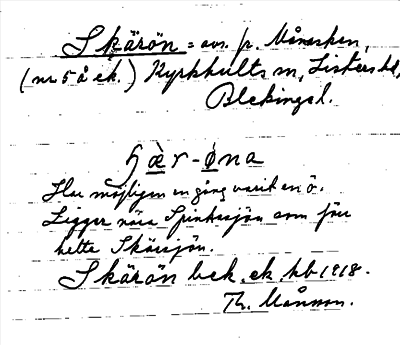 Skärön = avs. p. Månasken,
(nr 5 å ek.) Kyrkhults sn, Listers hd,
Blekinge l.
ʃæ̀r-ø̀na
Har möjligen en gång varit en ö.
Ligger nära Spinkasjön som förr
hette Skärsjön.
Skärön bek. ek. kb 1918.
Th. Månsson.